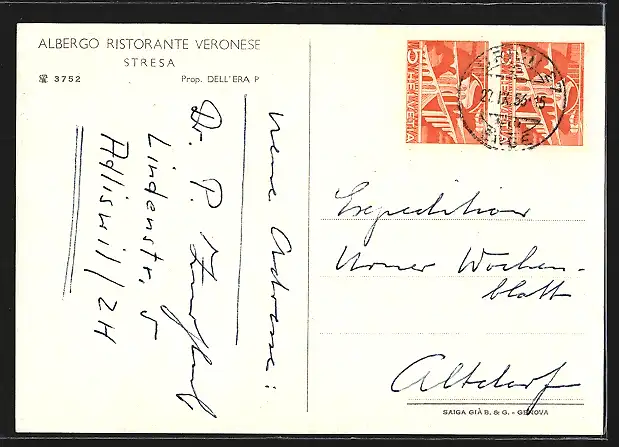 ALBERGO RISTORANTE VERONESE
STRESA
3752
Prop. DELL'ERA P
neue Adresse:
Dr. P.
Lindenstr. 5
Adliswil/ZH
5 HELVETIA
5 HELVETIA
27.IX.56-15
Expedition
Urner Wochen-
blatt
Altdorf
SAIGA GIÀ B. & G. - GENOVA